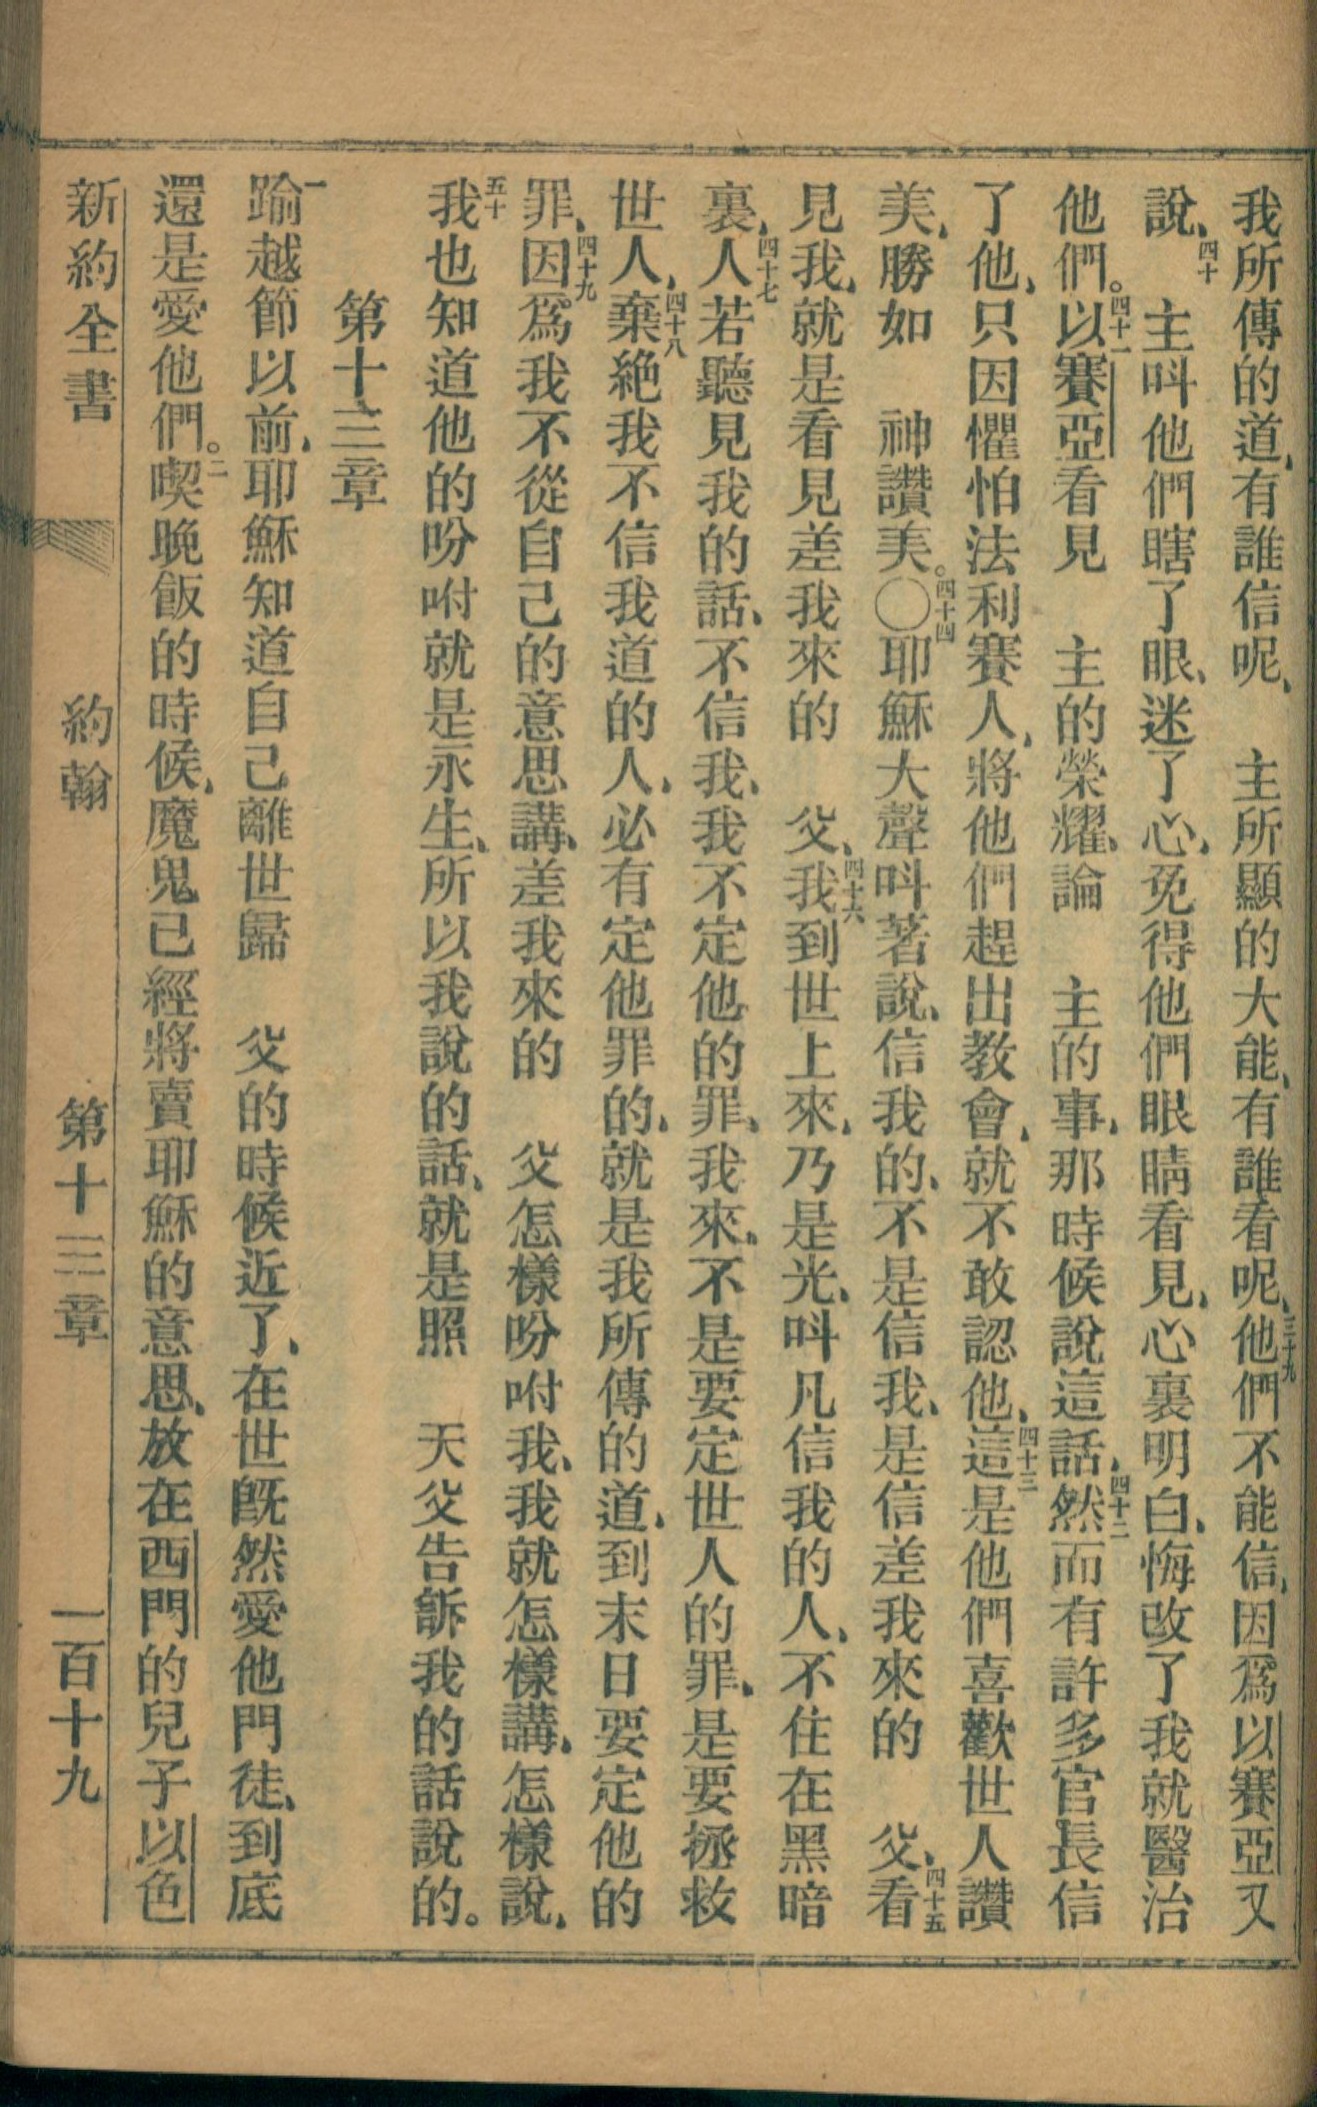 我所傳的道、有誰信呢、　主所顯的大能、有誰看呢、三十九他們不能信、因爲以賽亞又
說、四十　主呌他們瞎了眼、迷了心、免得他們眼睛看見、心裏明白、悔改了我就醫治
他們。四十一以賽亞看見　主的榮耀、論　主的事、那時候說這話、四十二然而有許多官長信
了他、只因懼怕法利賽人、將他們趕出教會、就不敢認他、四十三這是他們喜歡世人讚
美、勝如　神讚美。〇四十四耶穌大聲呌著說、信我的、不是信我、是信差我來的　父、四十五看
見我、就是看見差我來的　父、四十六我到世上來、乃是光、呌凡信我的人、不住在黑暗
裏、四十七人若聽見我的話、不信我、我不定他的罪、我來、不是要定世人的罪、是要拯救
世人、四十八棄絕我不信我道的人、必有定他罪的、就是我所傳的道、到末日要定他的
罪、四十九因爲我不從自己的意思講、差我來的　父怎樣吩咐我、我就怎樣講、怎樣說、
五十我也知道他的吩咐就是永生、所以我說的話、就是照　天父告訴我的話說的。
第十三章
一踰越節以前、耶穌知道自己離世歸　父的時候近了、在世旣然愛他門徒、到底
還是愛他們。二喫晚飯的時候、魔鬼已經將賣耶穌的意思、放在西門的兒子以色
新約全書　約翰　第十三章　一百十九